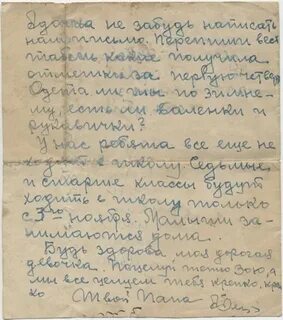 не забудь написать
нам письмо. Перепиши весь
табель какие получила
отметки за первую четверть.
Одета ли ты по зимне-
му, есть ли валенки и
рукавички?
У нас ребята все еще не
ходят в школу. Седьмые
и старшие классы будут
ходить в школу только
с 3го ноября. Малыши за-
нимаются дома.
Будь здорова, моя дорогая
девочка. Поцелуй тетю Зою, а
мы все целуем тебя крепко, креп
ко Твой Папа